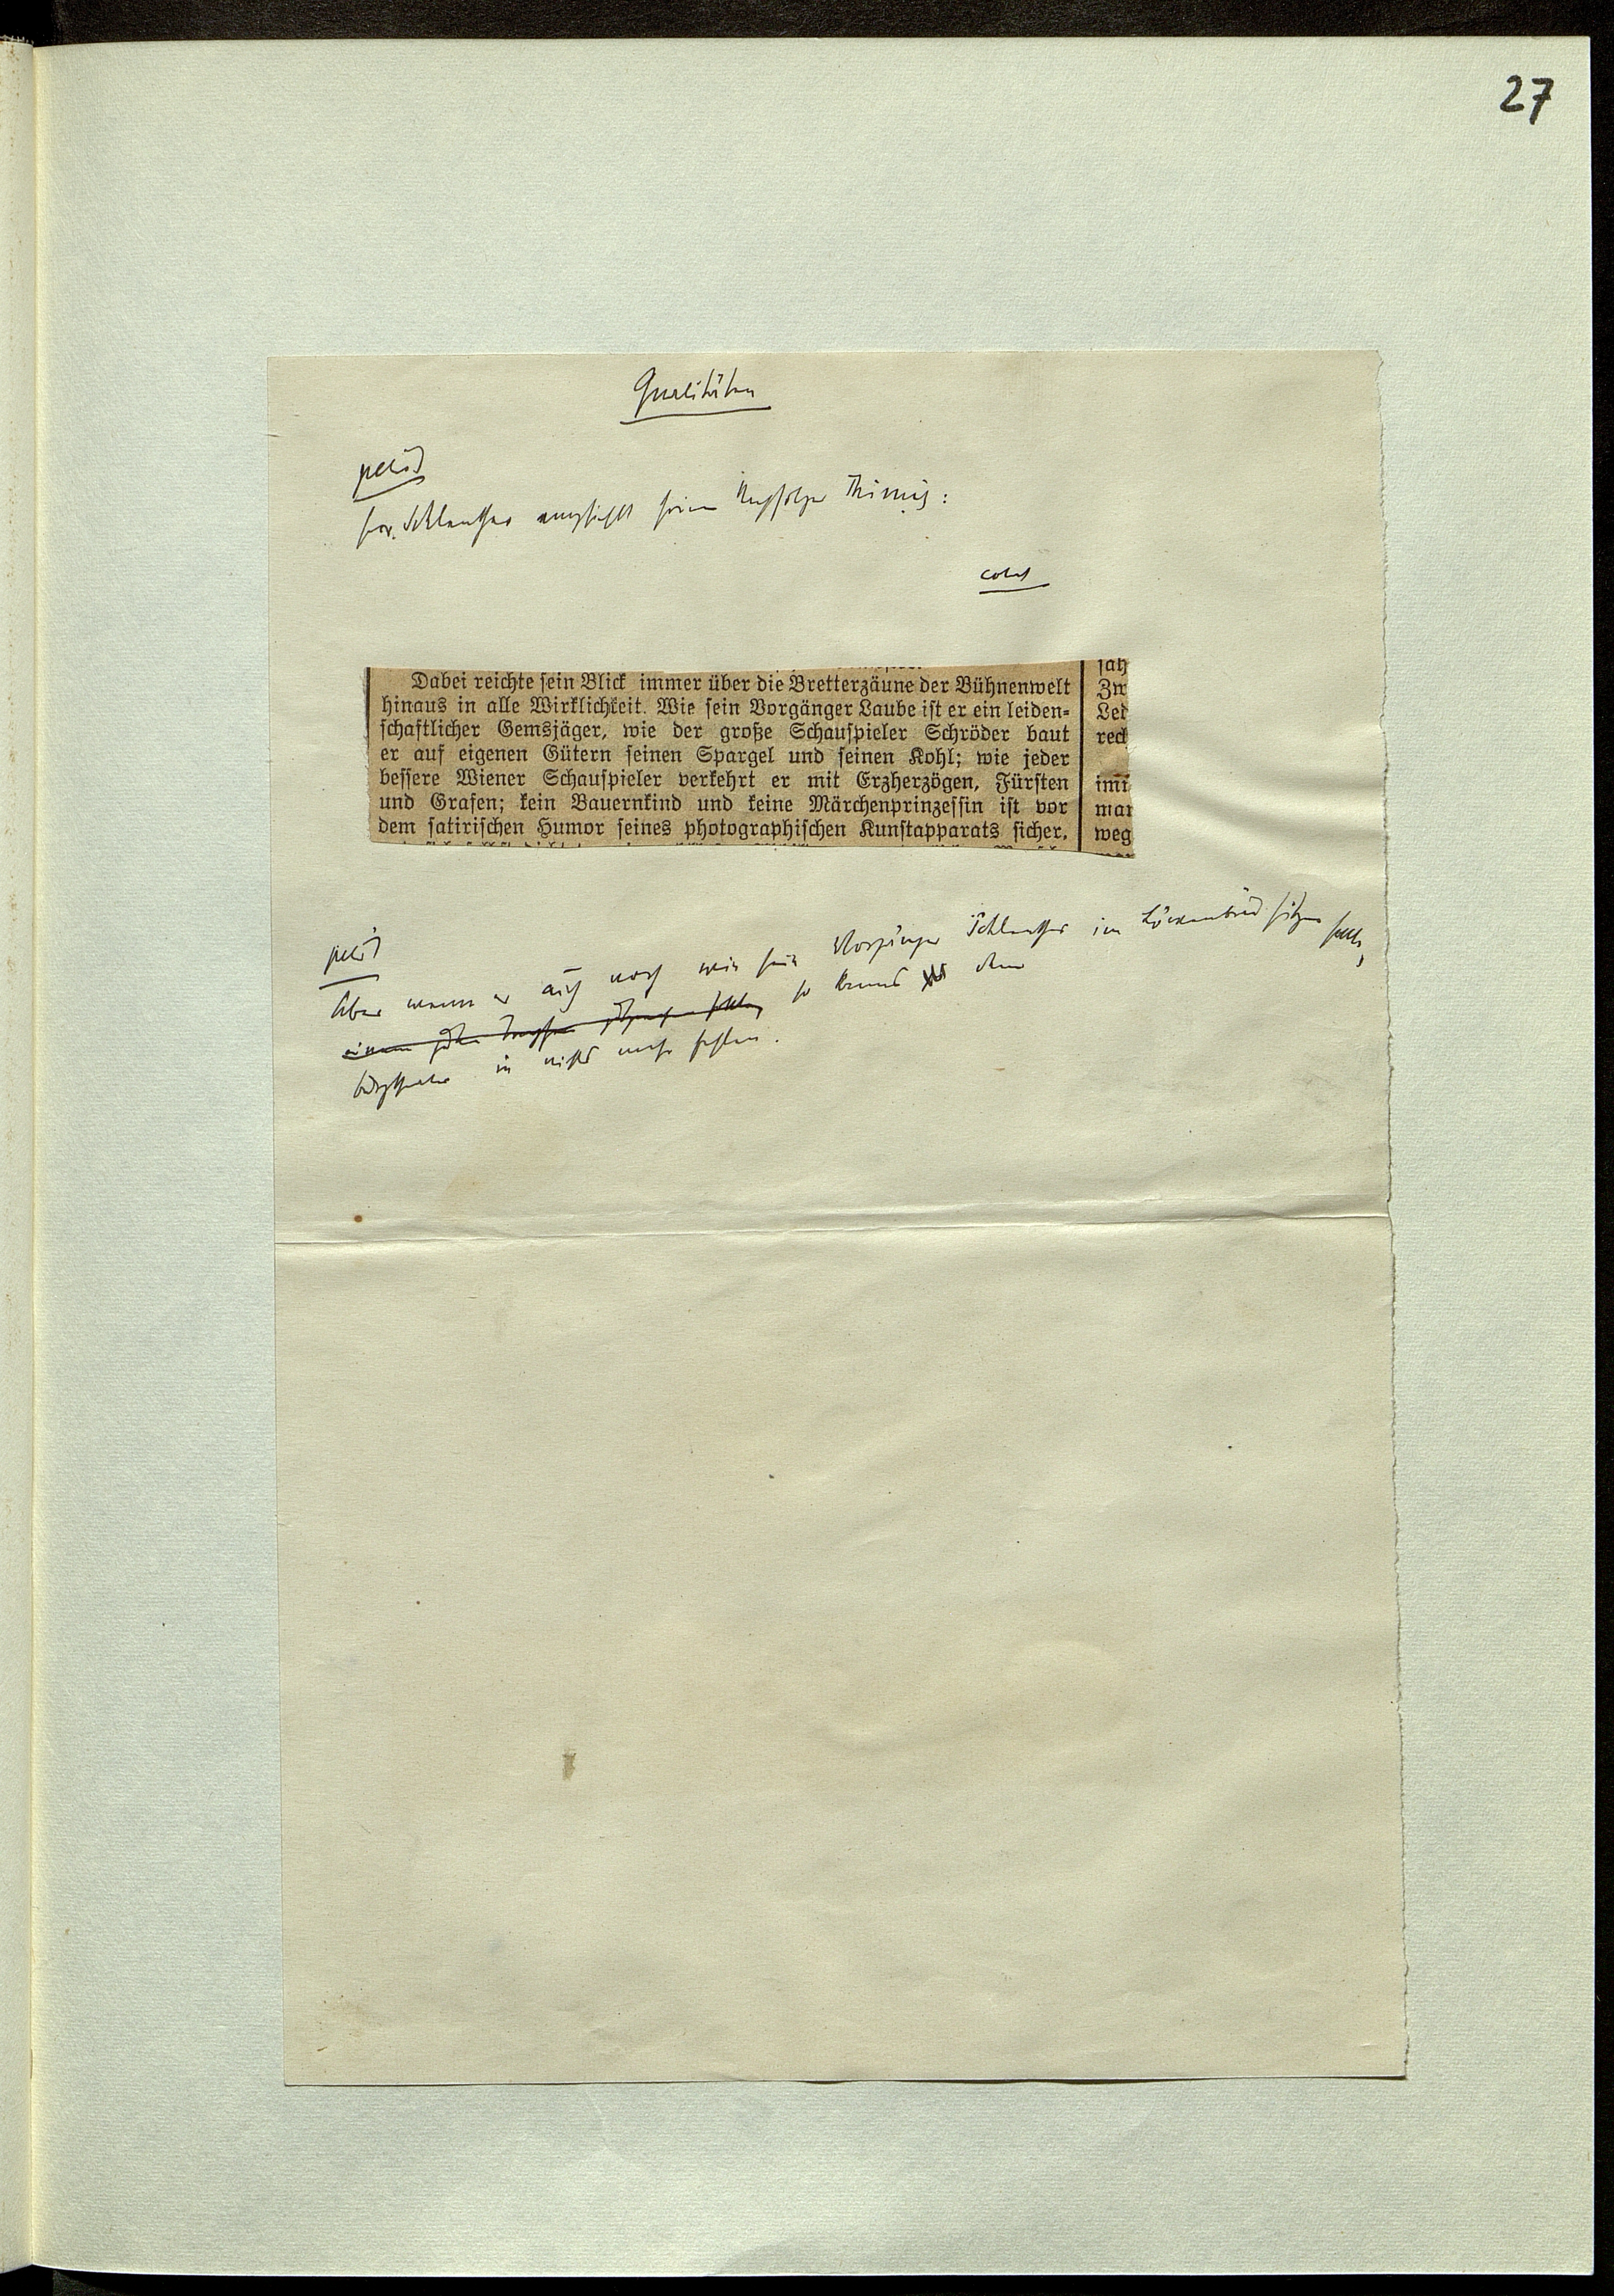 27
Qualitäten
petit
Herr Schlenther empfiehlt seinen Nachfolger Thimig:
colonel
sah
Dabei reichte sein Blick immer über die Bretterzäune der Bühnenwelt
hinaus in alle Wirklichkeit. Wie sein Vorgänger Laube ist er ein leiden-
schaftlicher Gemsjäger, wie der große Schauspieler Schröder baut
er auf eigenen Gütern seinen Spargel und seinen Kohl; wie jeder
bessere Wiener Schauspieler verkehrt er mit Erzherzögen, Fürsten
und Grafen; kein Bauernkind und keine Märchenprinzessin ist vor
dem satirischen Humor seines photographischen Kunstapparats sicher.
Zw
Led
reck
imm
man
weg
petit
Aber wenn er auch noch wie sein Vorgänger Schlenther im Löwenbräu sitzen sollte,
so kann es dem
Burgtheater in nichts mehr fehlen.